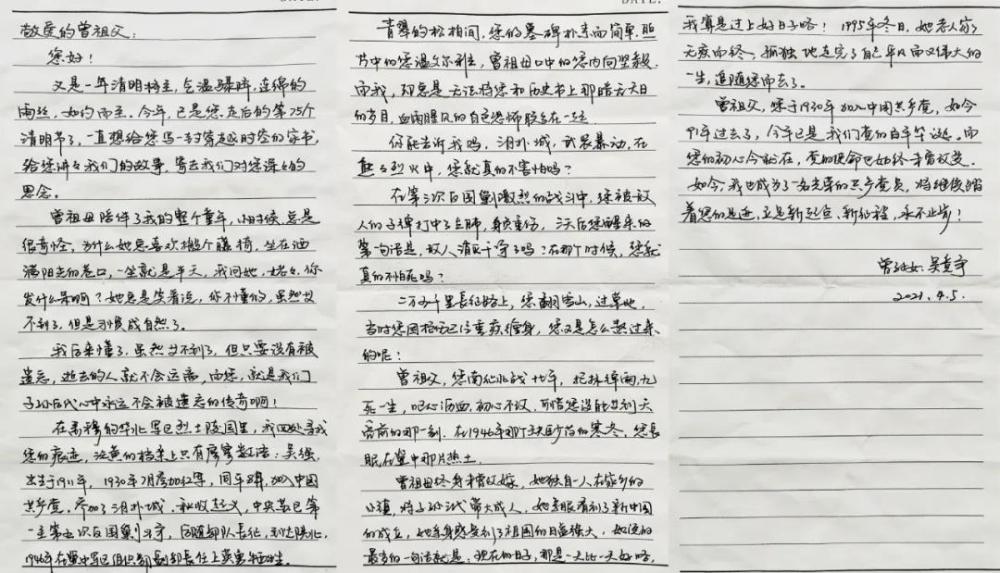 敬爱的曾祖父:
您好!
又是一年清明将至,乍温骤降,连绵的
雨丝,如约而至。今年,已是您走后的第75个
清明节了,一直想给您写一封穿越时空的家书,
给您讲讲我们的故事,寄去我们对您深深的
思念。
曾祖母陪伴了我的整个童年,小时候总是
很奇怪,为什么她总喜欢搬个藤椅,坐在洒
满阳光的巷口,一坐就是半天,我问她,姥姥,你
发什么呆啊?她总是笑着说,你不懂的,虽然等
不到了,但是习惯成自然了。
我后来懂了,虽然等不到了,但只要没有被
遗忘,逝去的人就不会远离,而您,就是我们
子孙后代心中永远不会被遗忘的传奇啊!
在肃穆的华北军区烈士陵园里,我四处寻找
您的痕迹,泛黄的档案上只有寥寥数语:吴强,
出生于1911年,1930年7月参加红军,同年8月,加入中国
共产党。参加了
中央苏区第
一至第五次反围剿斗争,后随部队长征,到达陕北,
1946年在冀中军区组织部副部长任上英勇牺牲。
青翠的松柏间,您的墓碑朴素而简单,照
片中的您温文尔雅,曾祖母口中的您内向坚毅,
而我,却总是无法将您和历史书上那暗无天日
的岁月,血雨腥风的白色恐怖联系在一起。
你能告诉我吗,
武装暴动,在
熊熊烈火中,您就真的不害怕吗?
在第三次反围剿激烈的战斗中,您被敌
人的子弹打中了左肺,身负重伤,三天后您醒来的
第一句话是,敌人消灭干净了吗?在那个时候,您就
真的不怕死吗?
二万五千里长征路上,您翻雪山,过草地,
当时您因枪伤已经重病缠身,您又是怎么熬过来
的呢?
曾祖父,您南征北战十几年,枪林弹雨,九
死一生,呕心沥血,初心不改,可惜您没能等到天
亮前的那一刻。在1946年那个缺医少药的寒冬,您长
眠在冀中那片热土。
曾祖母终身未曾改嫁,她独自一人在家乡的
小镇,将子孙代代带大成人,她亲眼看到了新中国
的成立,她亲身感受到了祖国的日益强大,她说的
最多的一句话就是:现在的日子,那是一天比一天好呀,
我算是过上好日子啦!1995年冬日,她老人家
无疾而终,孤独地走完了自己平凡而又伟大的
一生,追随您而去了。
曾祖父,您于1930年加入中国共产党,如今
91年过去了,今年已是我们党的百年华诞。而
您的初心今就在,党的使命也始终未曾改变。
如今,我也成为了一名光荣的共产党员,将继续踏
着您的足迹,立足新起点、新征程,永不止步!
曾孙女:吴
2021.4.5.